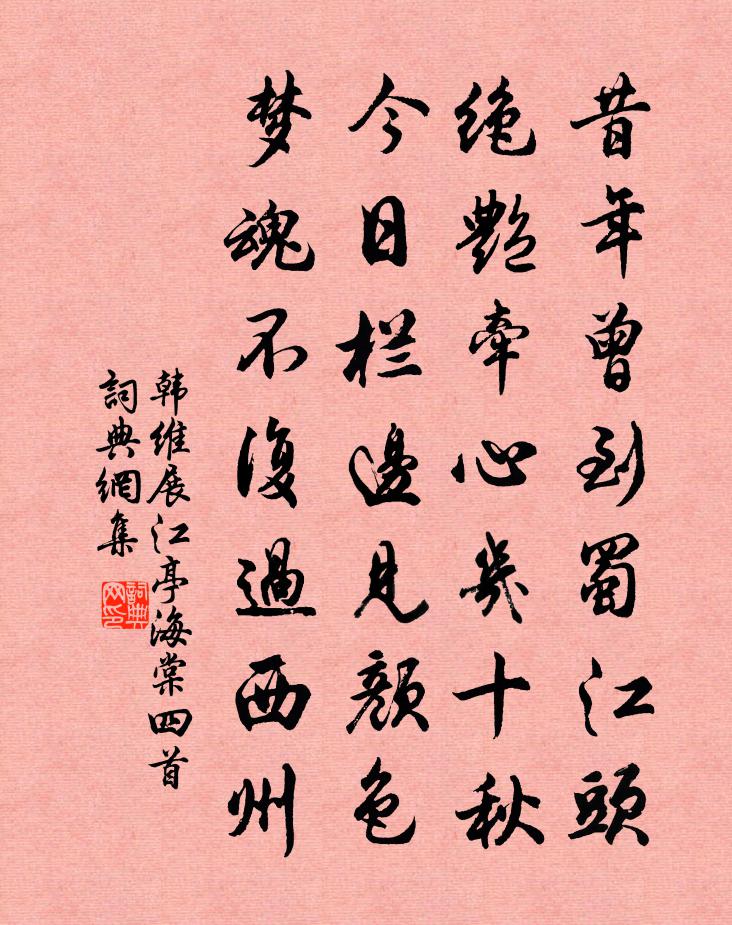 昔年曾到蜀江頭
绝艷牽心幾十秋
今日栏邊見顏色
梦魂不復過西州
韩維展江亭海棠四首
詞典網集
詞典网印